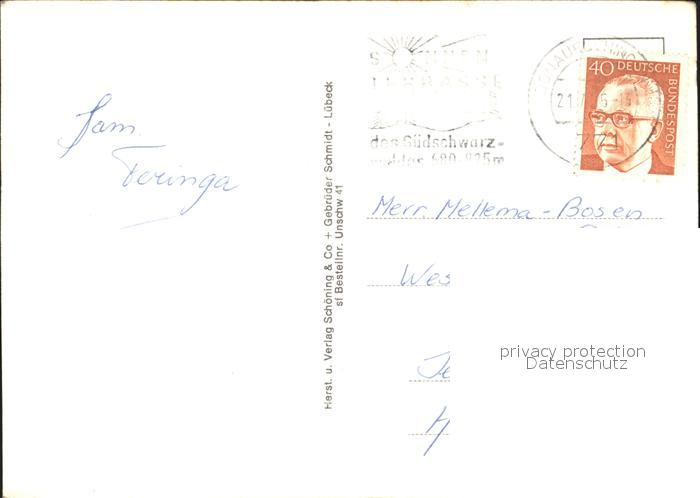 Fam.
Feringa
Herst. u. Verlag Schöning & Co + Gebrüder Schmidt - Lübeck
sf Bestellnr. Unschw 41
SONNEN
TERRASSE
des Südschwarz-
waldes 680-825m
40 DEUTSCHE
BUNDESPOST
Mevr. Mellema-Bosen
Wes
privacy protection
Datenschutz